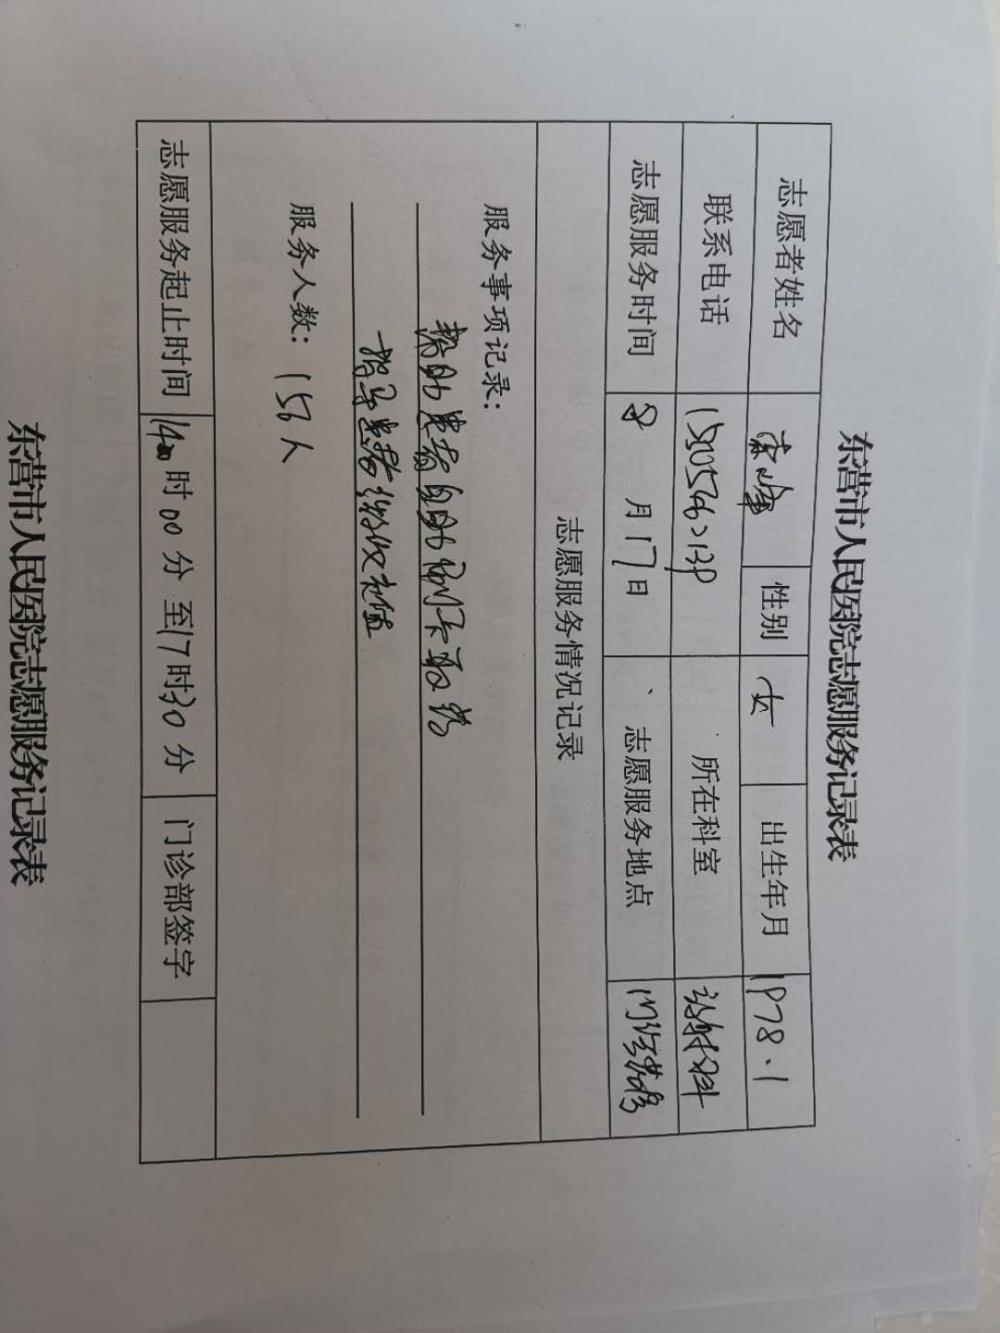 东营市人民医院志愿服务记录表
志愿者姓名 性别 女 出生年月 1978.1
联系电话 所在科室
志愿服务时间 8月17日 志愿服务地点 门诊
志愿服务情况记录
服务事项记录：
帮助患者自助
指导患者
服务人数：
志愿服务起止时间 14时00分 至17时30分 门诊部签字
东营市人民医院志愿服务记录表